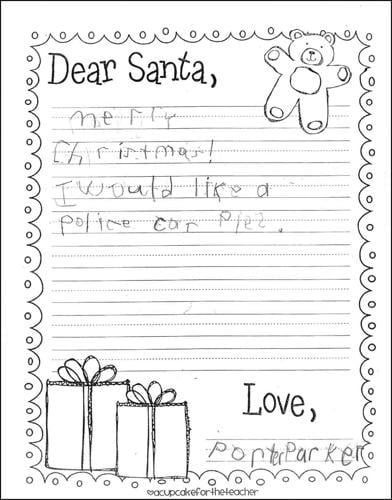 Dear Santa,
merry
Christmas!
I would like a
police car ples.
Love,
Porter Parker
©acupcakefortheteacher